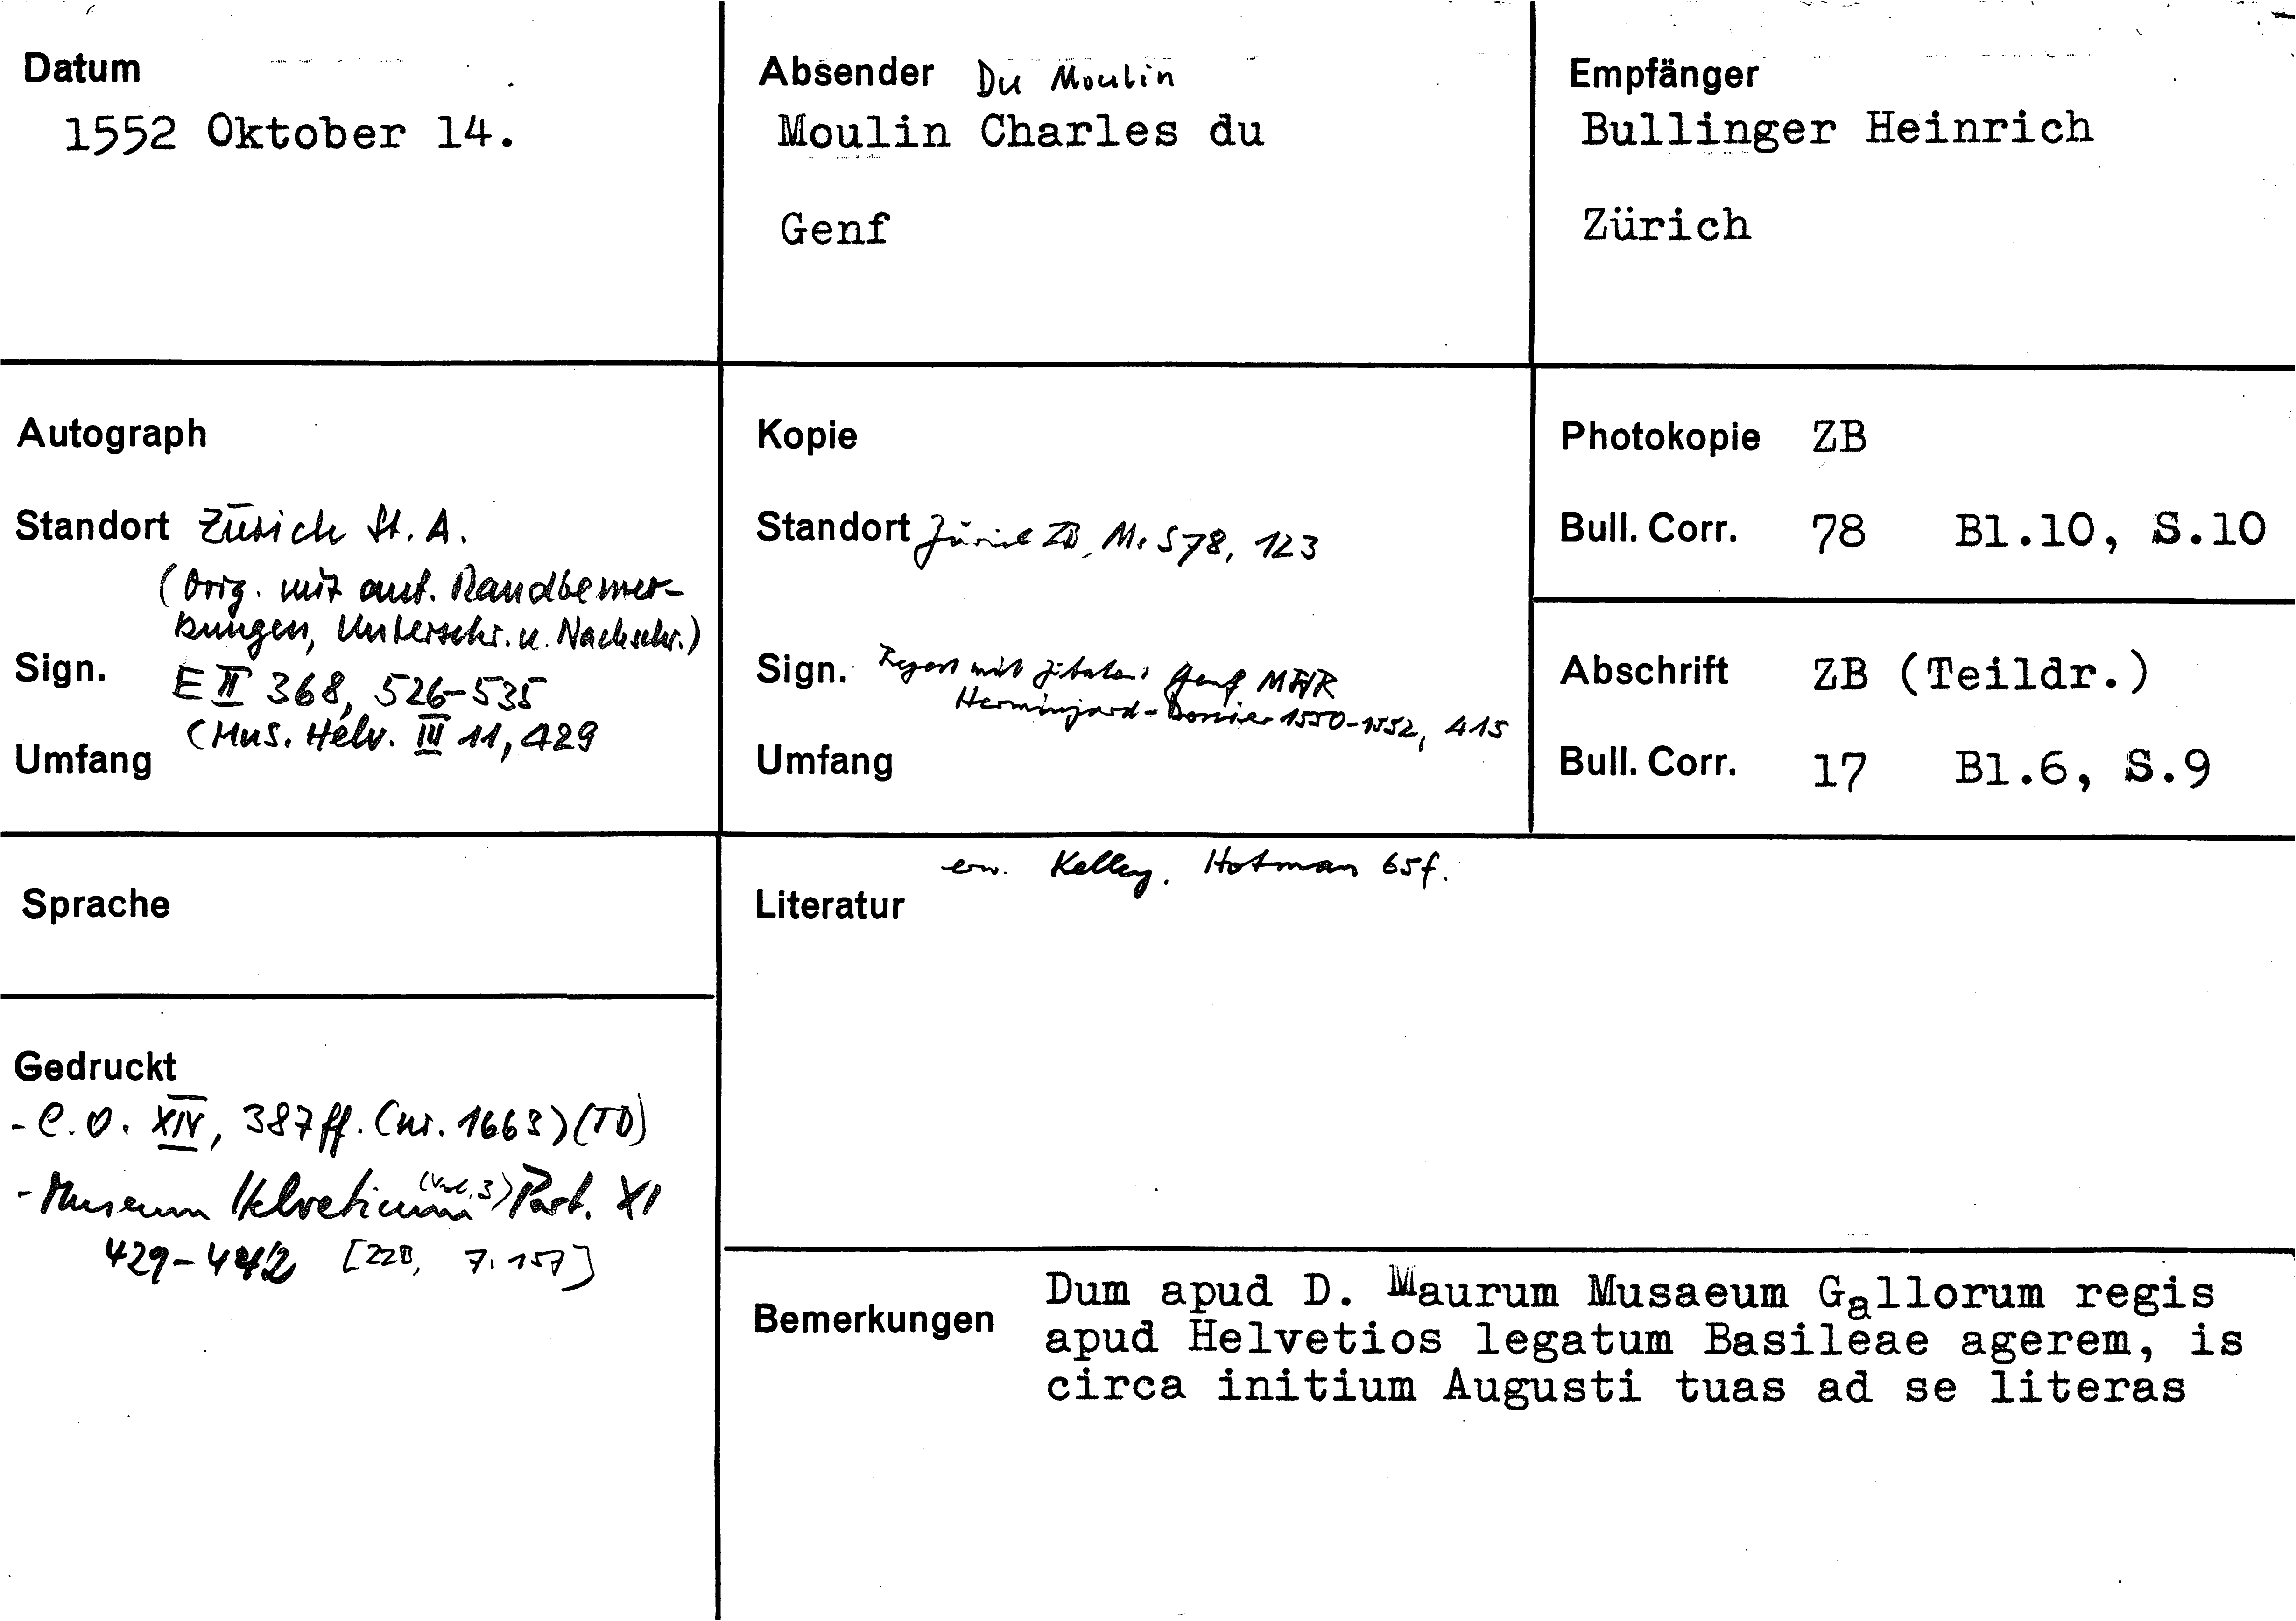 Datum
1552 Oktober 14.
Absender Du Moulin
Moulin Charles du
Genf
Empfänger
Bullinger Heinrich
Zürich
Autograph
Standort Zürich St. A.
(Orig. mit aut. Randbemer-
kungen, Unterschr. u. Nachschr.)
Sign. E II 368, 526-535
(Mus. Helv. III 11, 429
Umfang
Kopie
Standort Zürich ZB, Ms S 78, 123
Sign. Regest mit Zitaten: Genf MHR
Herminjard-Dossier 1550-1552, 415
Umfang
Photokopie ZB
Bull. Corr. 78 Bl.10, S.10
Abschrift ZB (Teildr.)
Bull. Corr. 17 Bl.6, S.9
Sprache
Gedruckt
- C.O. XIV, 387ff. (nr. 1663) (TD)
- Museum Helveticum (Vol. 3) Part. XI
429-442 [ZZB, 7. 157]
erw. Kelley, Hotman 65f.
Literatur
Bemerkungen
Dum apud D. Maurum Musaeum Gallorum regis
apud Helvetios legatum Basileae agerem, is
circa initium Augusti tuas ad se literas